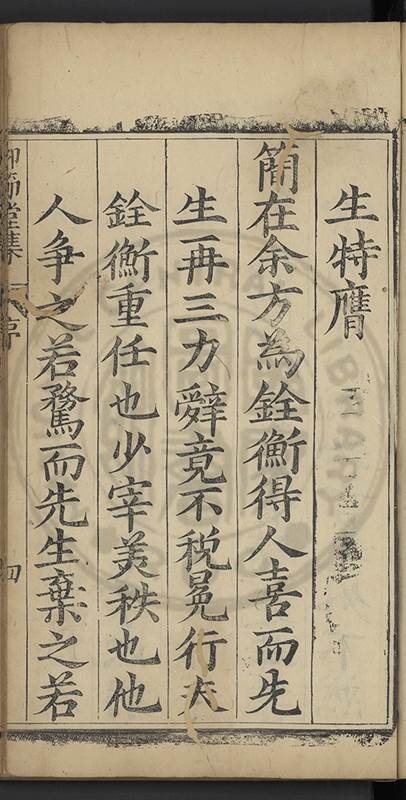 生特膺
簡在余方為銓衡得人喜而先
生一再三力辭竟不稅冕行夫
銓衡重任也少宰美秩也他
人爭之若騖而先生棄之若
集 序
四